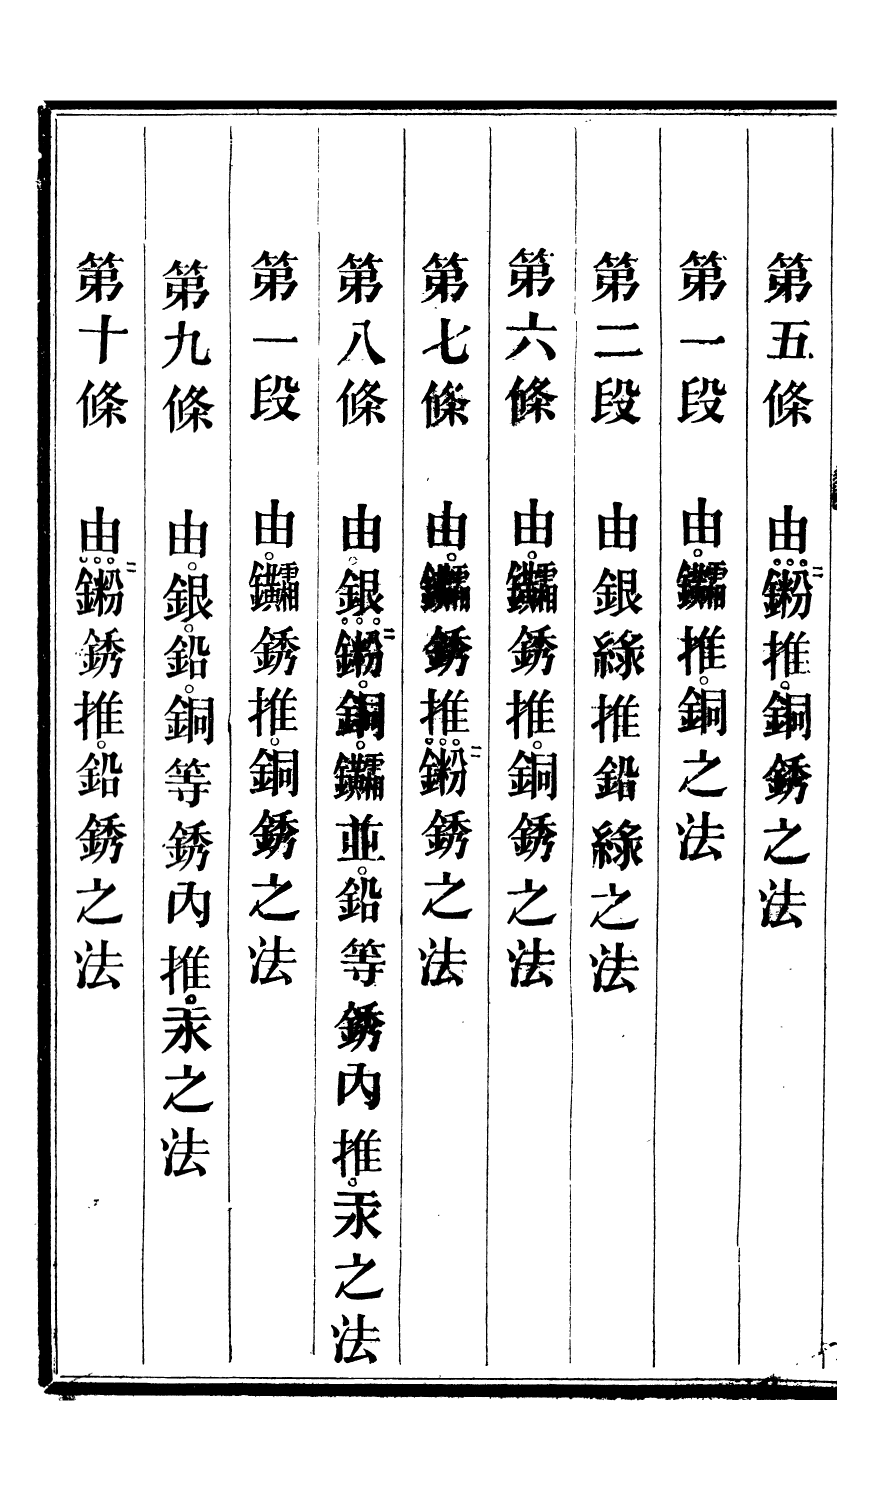 第五條 由推銅銹之法
第一段 由推銅之法
第二段 由銀綠推鉛綠之法
第六條 由銹推銅銹之法
第七條 由銹推銹之法
第八條 由銀銅並鉛等銹內推汞之法
第一段 由銹推銅銹之法
第九條 由銀鉛銅等銹內推汞之法
第十條 由銹推鉛銹之法